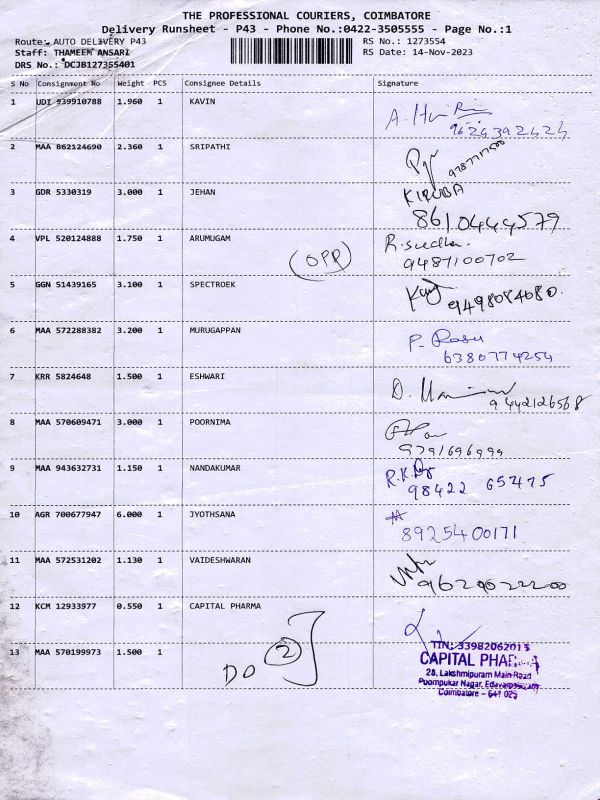 THE PROFESSIONAL COURIERS, COIMBATORE
Delivery Runsheet - P43 - Phone No.:0422-3505555 - Page No.:1
Route: AUTO DELIVERY P43
RS No.: 1273554
Staff: THAMEEM ANSARI
RS Date: 14-Nov-2023
DRS No.: DCJB127355401
S No Consignment No Weight PCS Consignee Details Signature
1 UDI 939910788 1.960 1 KAVIN
2 MAA 862124690 2.360 1 SRIPATHI
3 GDR 5330319 3.000 1 JEHAN KIRUBA
8610444579
4 VPL 520124888 1.750 1 ARUMUGAM (OPP) R. Sudha.
9487100702
5 GGN 51439165 3.100 1 SPECTROEK
9498084080.
6 MAA 572288382 3.200 1 MURUGAPPAN
6380774254
7 KRR 5824648 1.500 1 ESHWARI
9442126568
8 MAA 570609471 3.000 1 POORNIMA
9791696999
9 MAA 943632731 1.150 1 NANDAKUMAR
98422 65475
10 AGR 700677947 6.000 1 JYOTHSANA
8925400171
11 MAA 572531202 1.130 1 VAIDESHWARAN
9629022200
12 KCM 12933977 0.550 1 CAPITAL PHARMA
13 MAA 570199973 1.500 1 DO 2
TIN: 33982062015
CAPITAL PHARMA
28, Lakshmipuram Main Road
Poompukar Nagar, Edayarpalayam
Coimbatore - 641 025